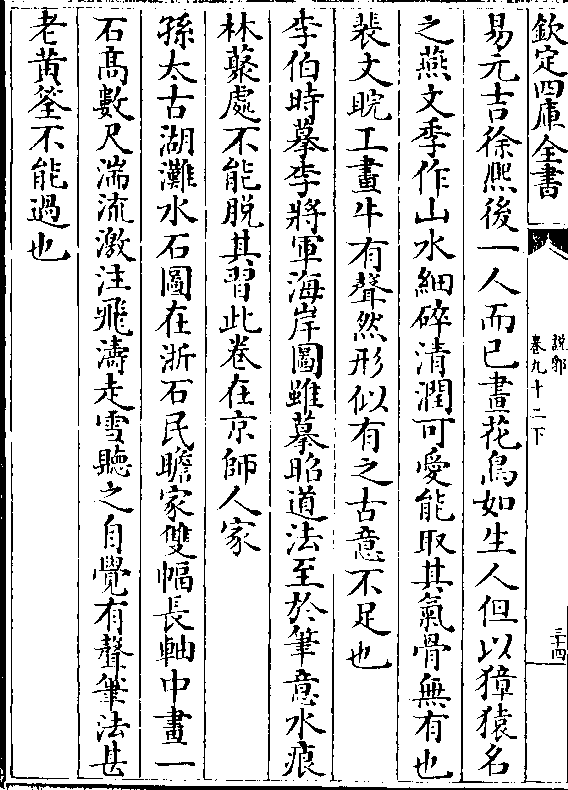 欽定四庫全書
說郛
卷九十二下
三十四
易元吉徐熙後一人而已畫花鳥如生人但以獐猿名
之燕文季作山水細碎清潤可愛能取其氣骨無有也
裴文睆工畫牛有聲然形似有之古意不足也
李伯時摹李將軍海岸圖雖摹昭道法至於筆意水痕
林藂處不能脫其習此卷在京師人家
孫太古湖灘水石圖在浙石民瞻家雙幅長軸中畫一
石髙數尺湍流激注飛濤走雪聽之自覺有聲筆法甚
老黄筌不能過也